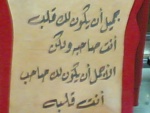 جميل أن يكون لك قلب
أنت صاحبه ولكن
الأجمل أن يكون لك صاحب
أنت قلبه